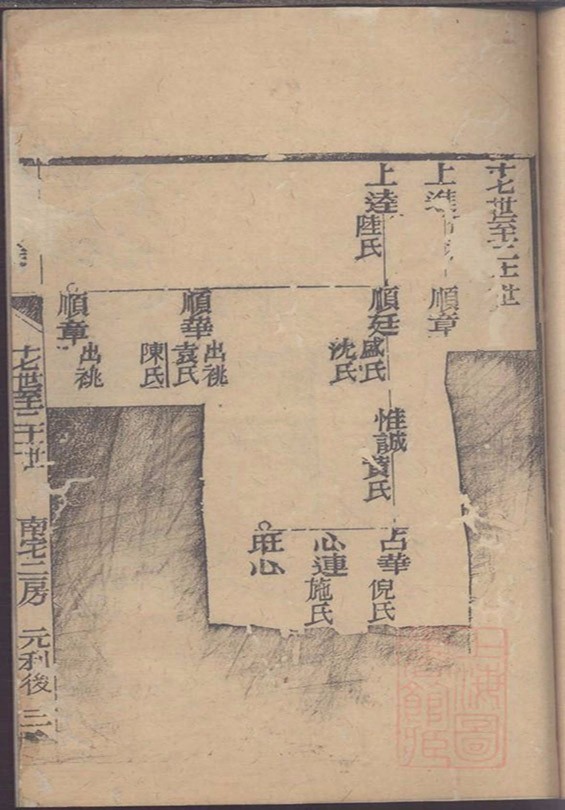 十七世至二十世
上進
順章
上逵
陸氏
順廷
盛氏
沈氏
惟誠
黄氏
占華
倪氏
心連
施氏
旺心
順華
出祧
袁氏
陳氏
順章
出祧
十七世至二十世
南宅二房
元利後
三